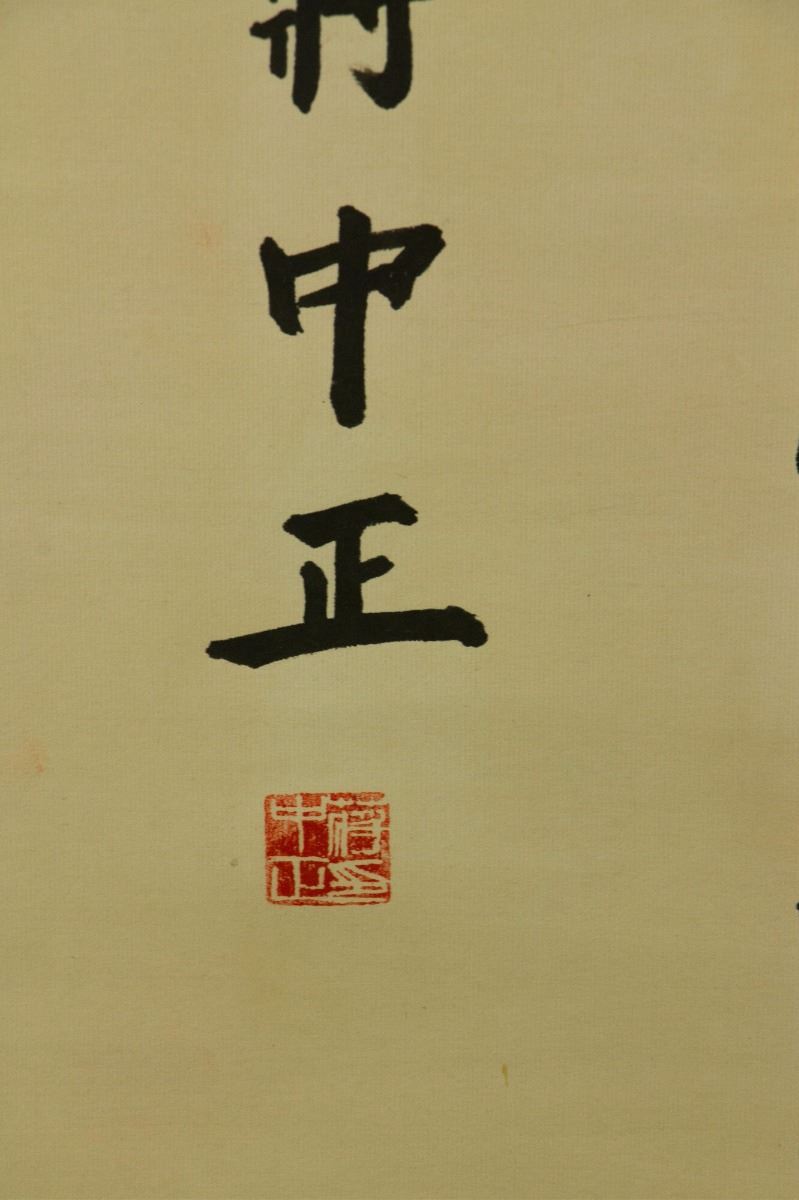 蔣中正
蔣印中正